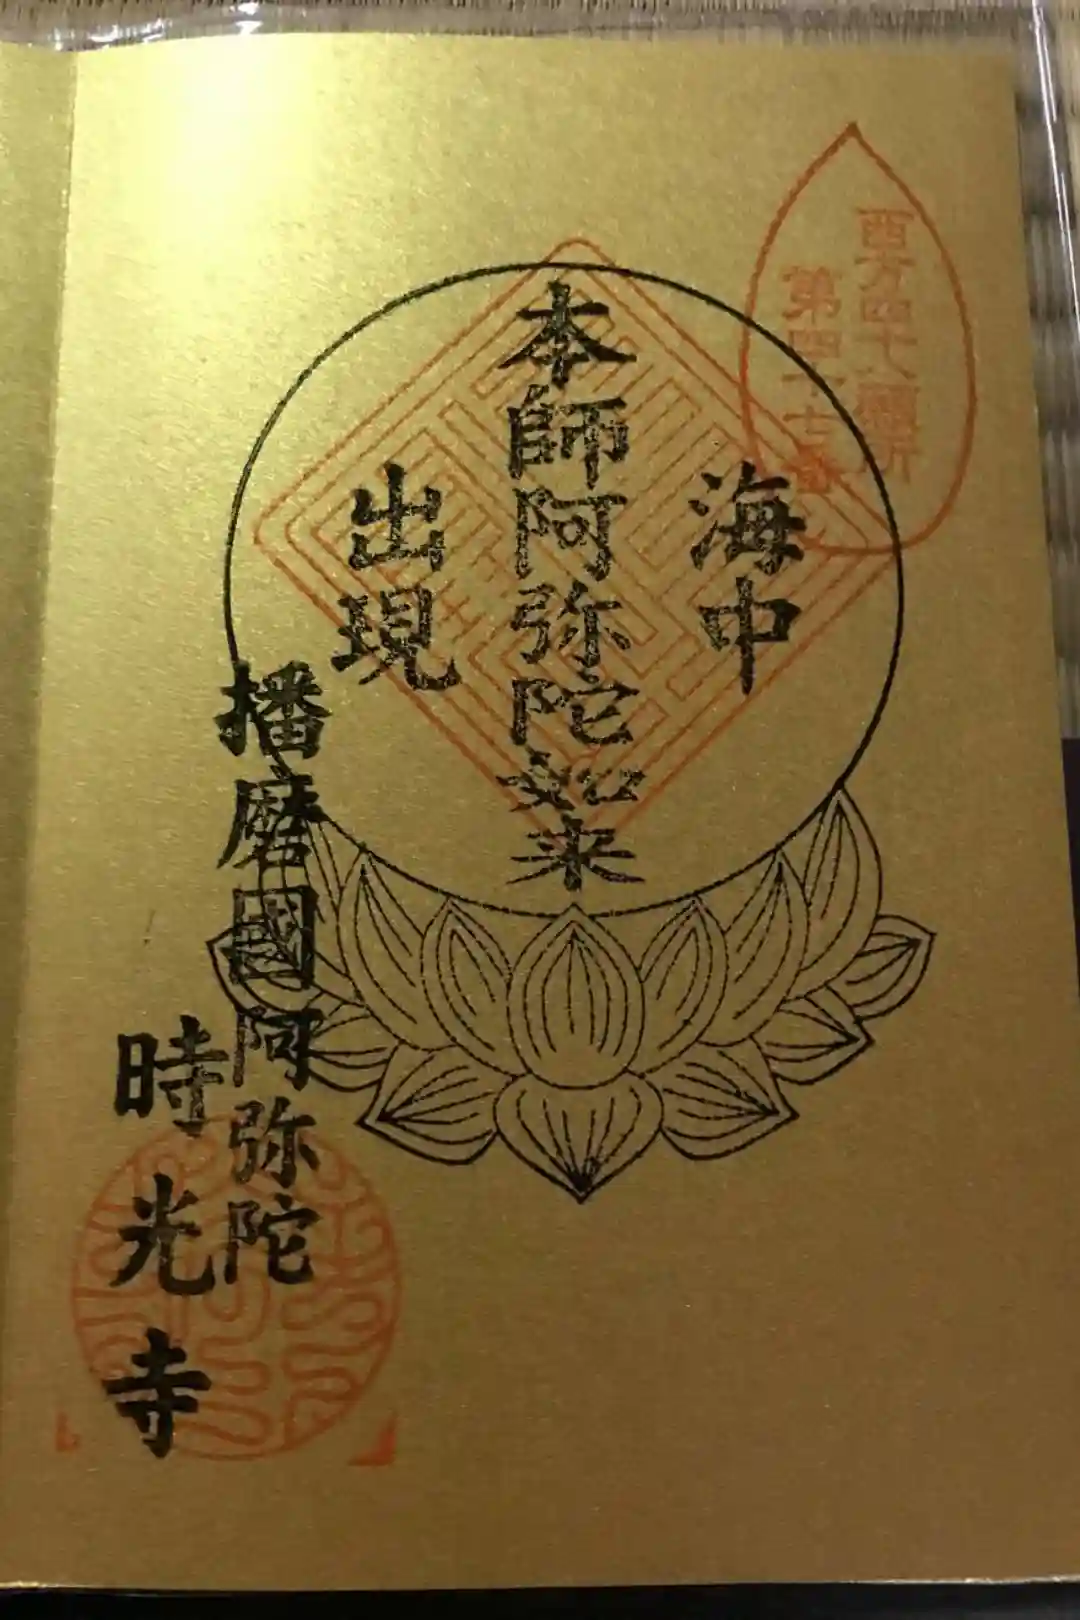 西方四十八願所
第四十七番
海中
本師阿弥陀如来
出現
播磨國阿弥陀
時光寺